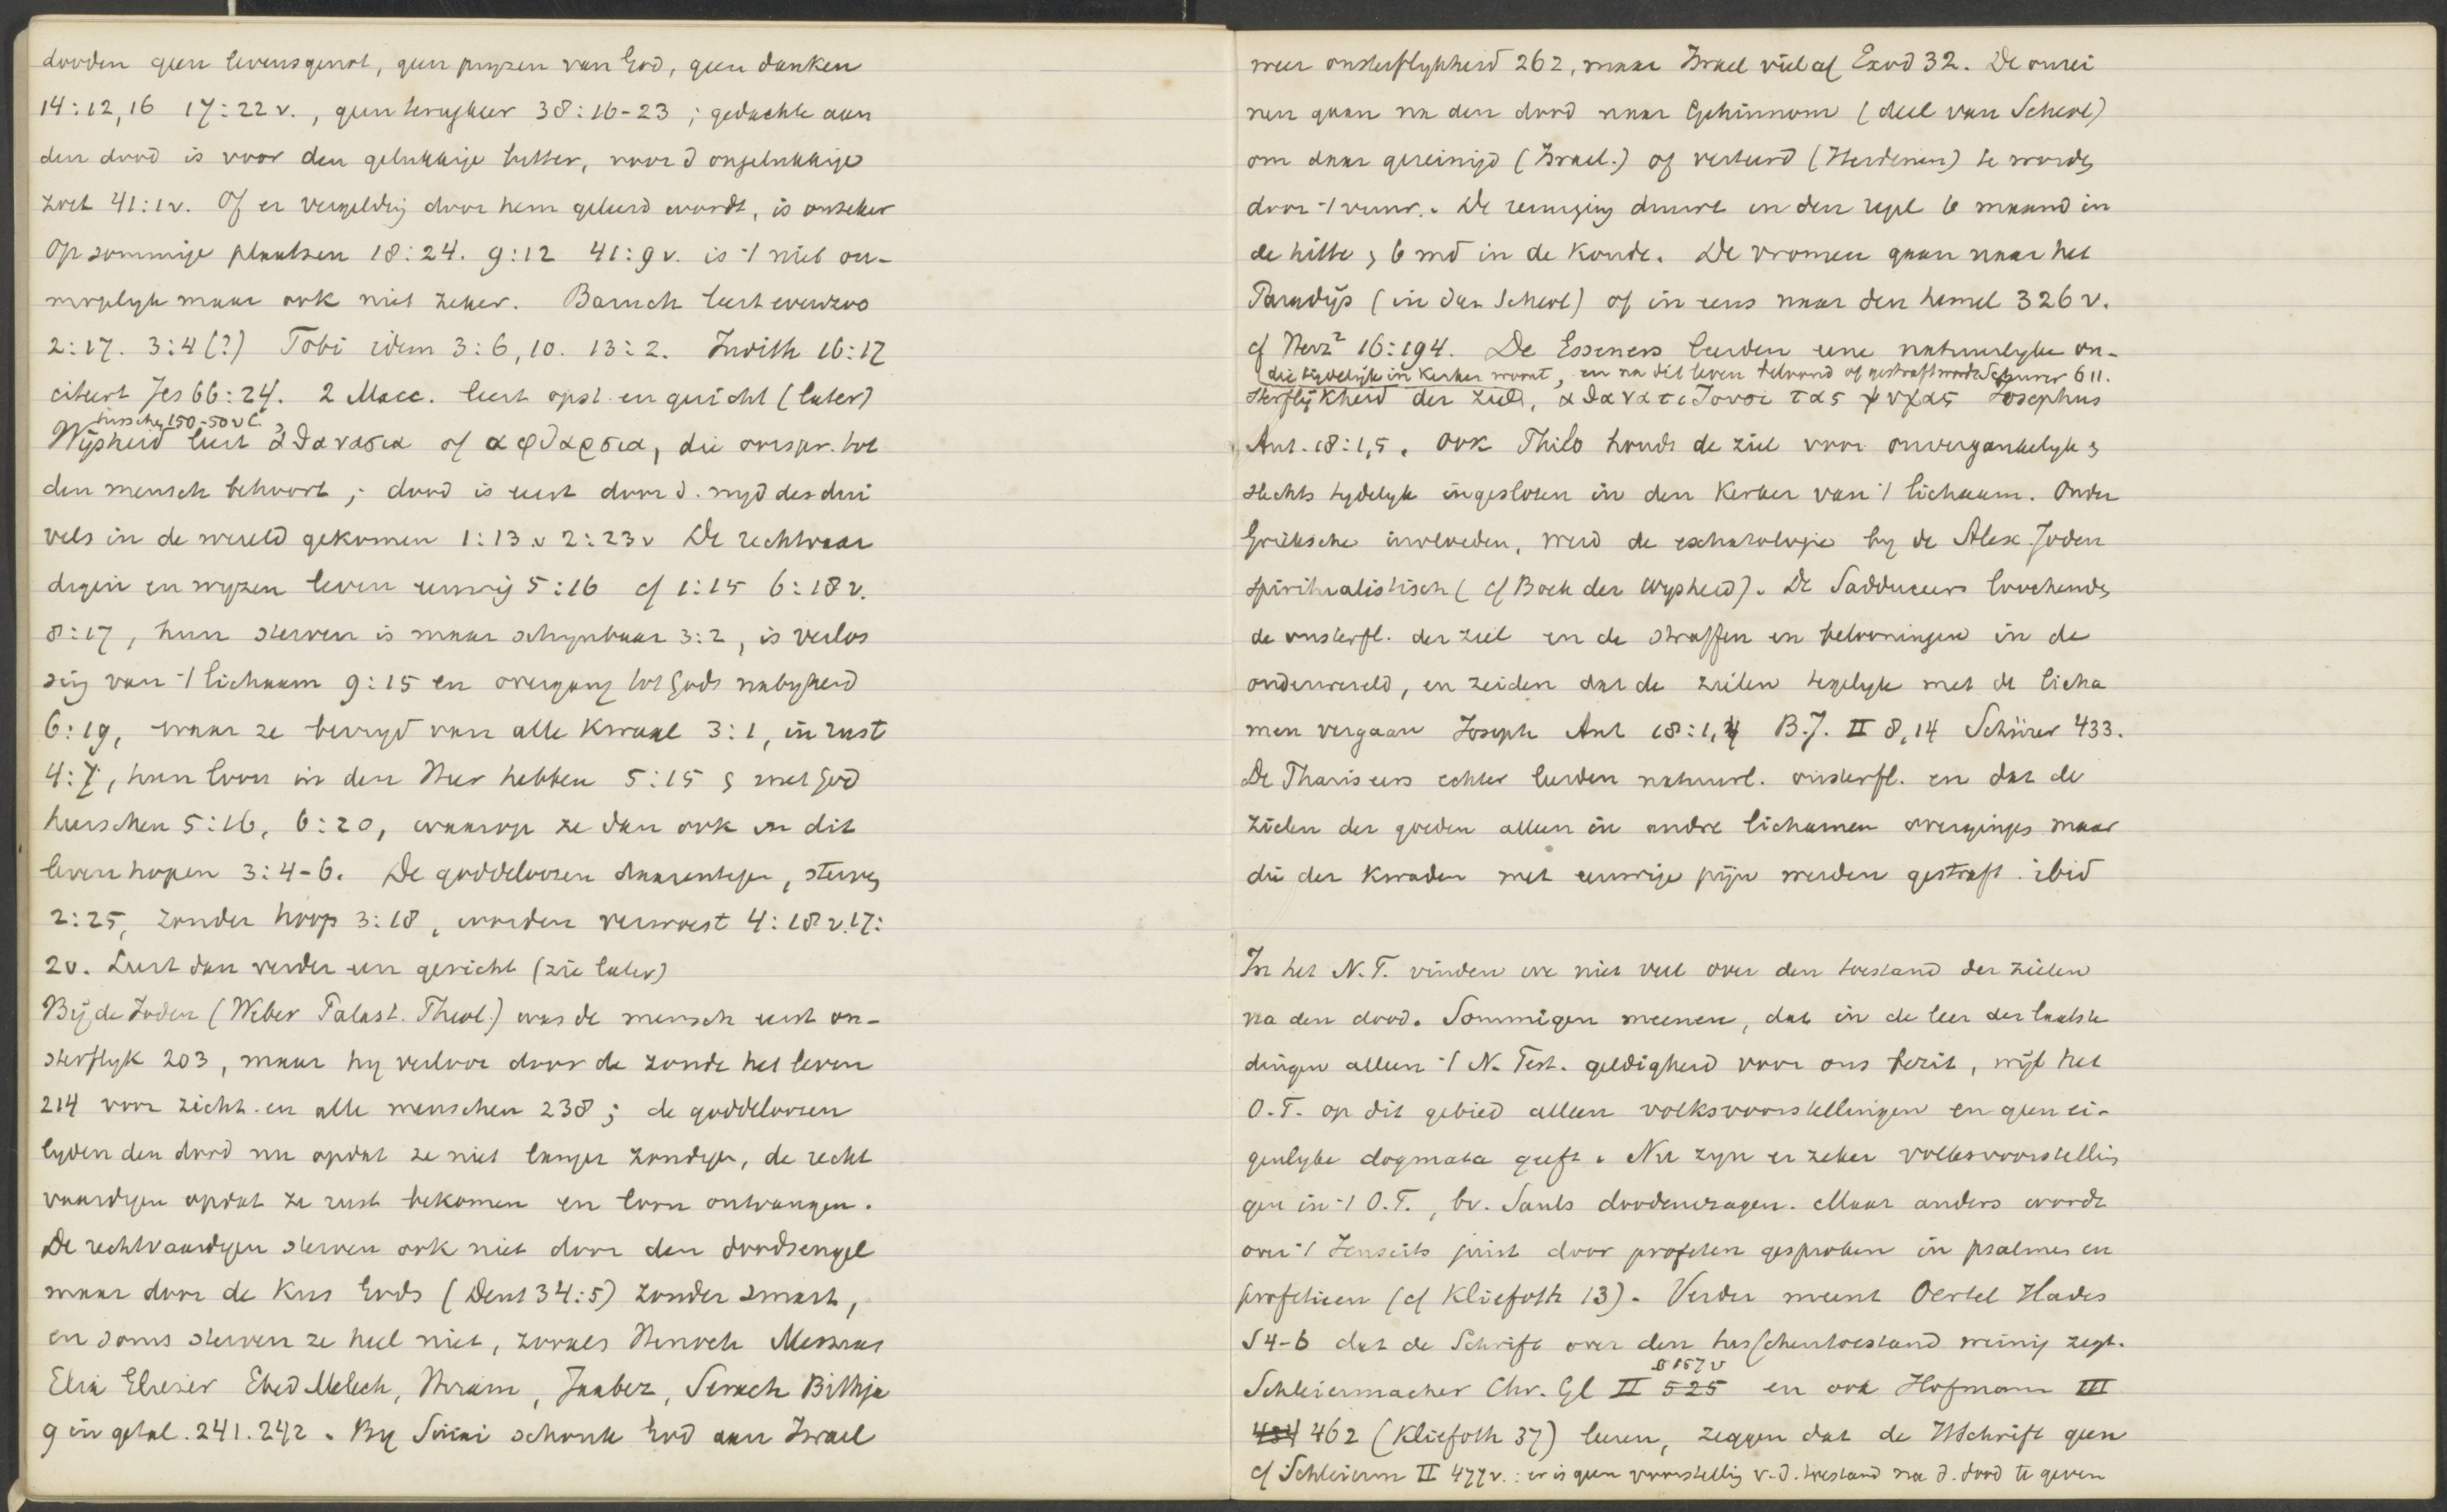 dooden geen levensgenot, geen pryzen van God, geen danken
14:12,16 17:22 v., geen terugkeer 38:16-23; gedachte aan
den dood is voor den gelukkige bitter, voor d ongelukkige
zoet 41:1v. Of er vergeldig door hem geleerd wordt, is onzeker
Op sommige plaatsen 18:24. 9:12 41:9v. is 't niet on-
mogelyk maar ook niet zeker. Baruch leert evenzoo
2:17. 3:4(?) Tobi idem 3:6,10. 13:2. Judith 16:17
citeert Jes 66:24. 2 Macc. leert opst. en gericht (later)
tusschen 150-50 v C.
Wijsheid leert ἀθανασια of αφθαρσια, die oorspr. tot
den mensch behoort; dood is eerst door d. nyd des dui
vels in de wereld gekomen 1:13 v 2:23v De rechtvaar
digen en wyzen leven eeuwig 5:16 cf 1:15 6:18 v.
8:17, hun sterven is maar schynbaar 3:2, is verlos
sing van 't lichaam 9:15 en overgang tot Gods nabyheid
6:19, waar ze bevryd van alle kwaal 3:1, in rust
4:7, hun loon in den Heer hebben 5:15 & met God
heerschen 5:16, 6:20, waarop ze dan ook in dit
leven hopen 3:4-6. De goddeloozen daarentegen, sterven
2:25, zonder hoop 3:18, worden verwoest 4:18 v. 17:
2v. Leert dan verder een gericht (zie later)
Bij de Joden (Weber Palast. Theol.) was de mensch eerst on-
sterflyk 203, maar hy verloor door de zonde het leven
214 voor zich en alle menschen 238; de goddeloozen
lyden den dood nu opdat ze niet langer zondigen, de recht
vaardigen opdat ze rust bekomen en loon ontvangen.
De rechtvaardigen sterven ook niet door den doodsengel
maar door de kus Gods (Deut 34:5) zonder smart,
en soms sterven ze heel niet, zooals Henoch Messias
Elia Elieser Ebed Melech, Hiram, Jaabez, Serach Bithja
9 in getal. 241. 242. By Sinai schonk God aan Israel
weer onsterflykheid 262, maar Israel viel af Exod 32. De onrei
nen gaan na den dood naar Gehinnom (deel van Scheol)
om daar gereinigd (Israel.) of verteerd (Heidenen) te worden
door 't vuur. De reiniging duurt in den regel 6 maand in
de hitte & 6 md in de koude. De vromen gaan naar het
Paradijs (in den Scheol) of in eens naar den hemel 326 v.
cf Herz² 16:194. De Esseners leerden eene natuurlyke on-
die tijdelijk in kerker woont, en na dit leven beloond of gestraft wordt Schurer 611.
sterflijkheid der ziel, αθανατιζουσι τας ψυχας Josephus
Ant. 18:1,5. Ook Philo houdt de ziel voor onvergankelyk &
slechts tydelyk ingesloten in den kerker van 't lichaam. Onder
Grieksche invloeden, werd de eschatologie by de Alex. Joden
spiritualistisch (cf Boek der Wysheid). De Sadduceers loochenden
de onsterfl. der ziel en de straffen en belooningen in de
onderwereld, en zeiden dat de zielen tegelyk met de licha
men vergaan Joseph Ant 18:1,4 B.J. II 8,14 Schürer 433.
De Phariseers echter leerden natuurl. onsterfl. en dat de
zielen der goeden alleen in andre lichamen overgingen maar
die der kwaden met eeuwige pijn werden gestraft. ibid
In het N.T. vinden we niet veel over den toestand der zielen
na den dood. Sommigen meenen, dat in de leer der laatste
dingen alleen 't N. Test. geldigheid voor ons bezit, wijl het
O.T. op dit gebied alleen volksvoorstellingen en geen ei-
genlyke dogmata geeft. Nu zyn er zeker volksvoorstellin
gen in 't O.T., bv. Sauls doodenvragen. Maar anders wordt
over 't Jenseits juist door profeten gesproken in psalmen en
profetieen (cf Kliefoth 13). Verder meent Oertel Hades
S 4-6 dat de Schrift over den tusschentoestand weinig zegt.
§ 157 v
Schleiermacher Chr. Gl II 525 en ook Hofmann III
434 462 (Kliefoth 37) leeren, zeggen dat de HSchrift geen
cf Schleierm II 477 v.: er is geen voorstellig v. d. toestand na d. dood te geven